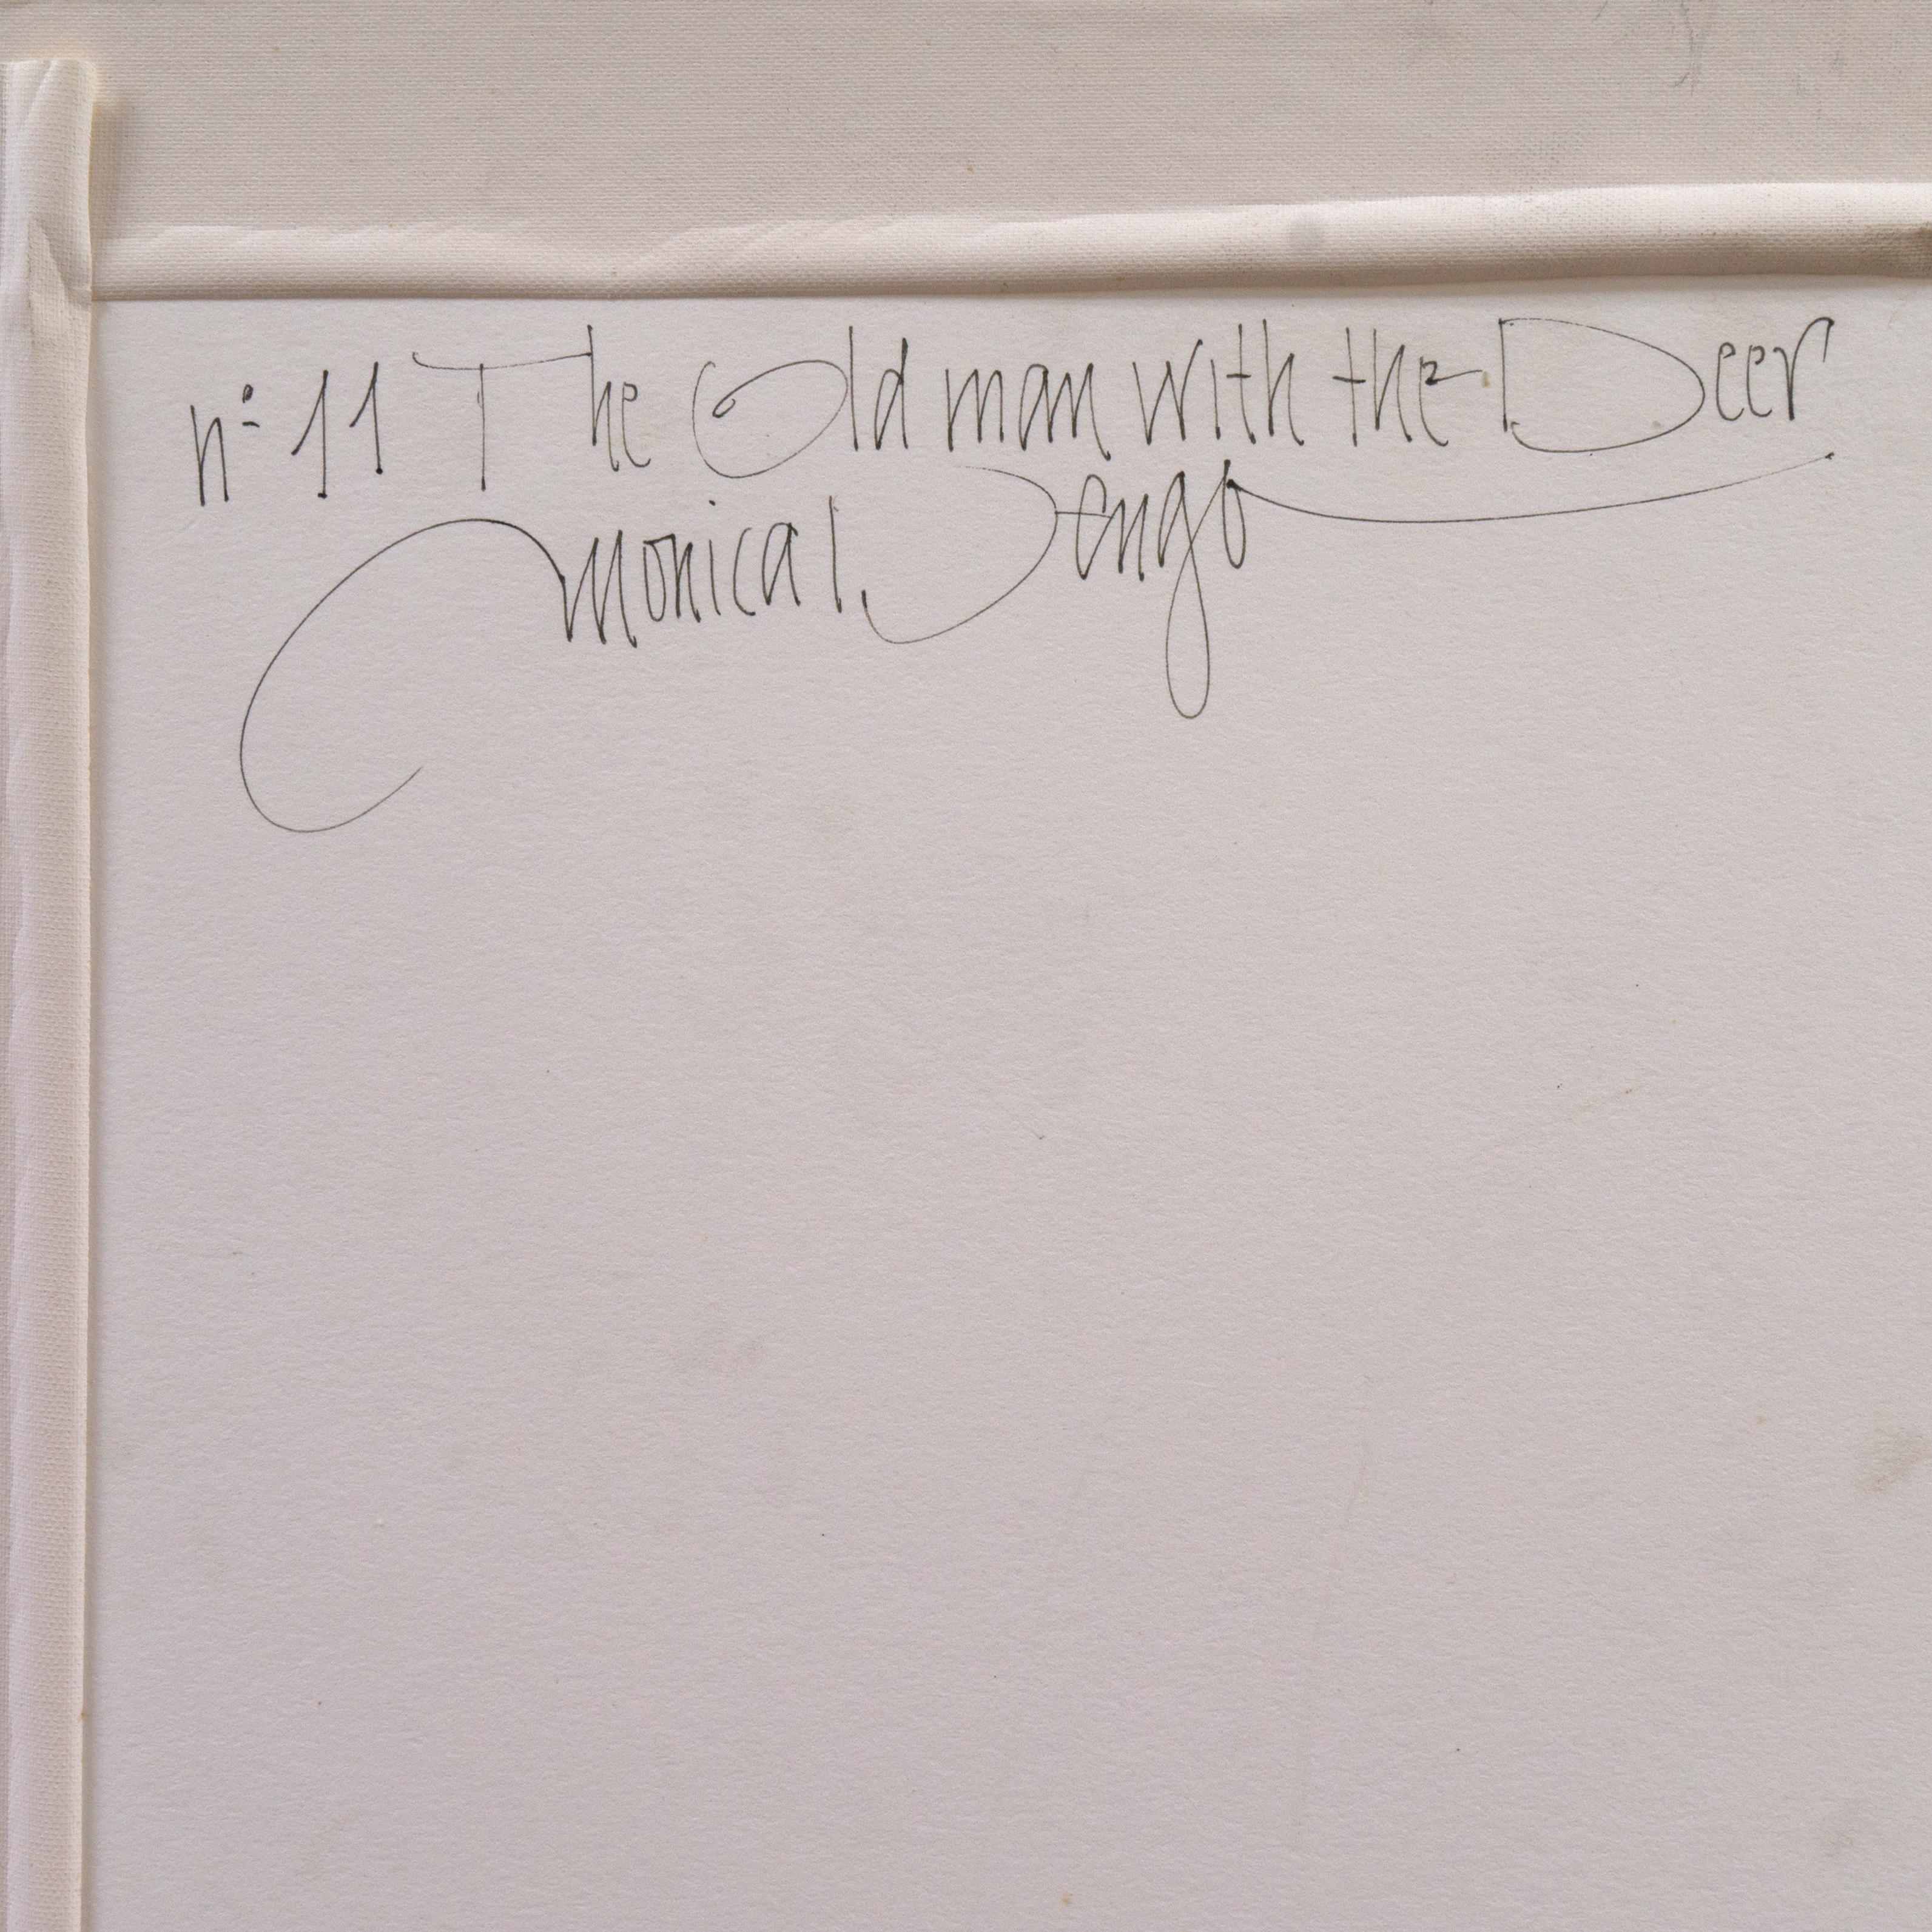 nº 11 The Old man with the Deer
Monica Dengo